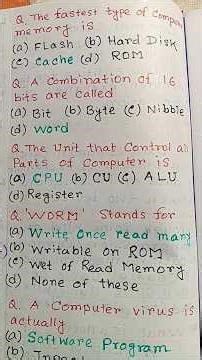 Q. The fastest type of Computer
memory is
(a) FLash (b) Hard Disk
(c) Cache (d) ROM
Q. A Combination of 16
bits are called
(a) Bit (b) Byte (c) Nibble
(d) Word
Q. The Unit that Control all
Parts of Computer is
(a) CPU (b) CU (c) ALU
(d) Register
Q. 'WORM' Stands for
(a) Write Once read many
(b) Writable on ROM
(c) Wet of Read Memory
(d) None of these
Q. A Computer virus is
actually
(a) Software Program
(b)